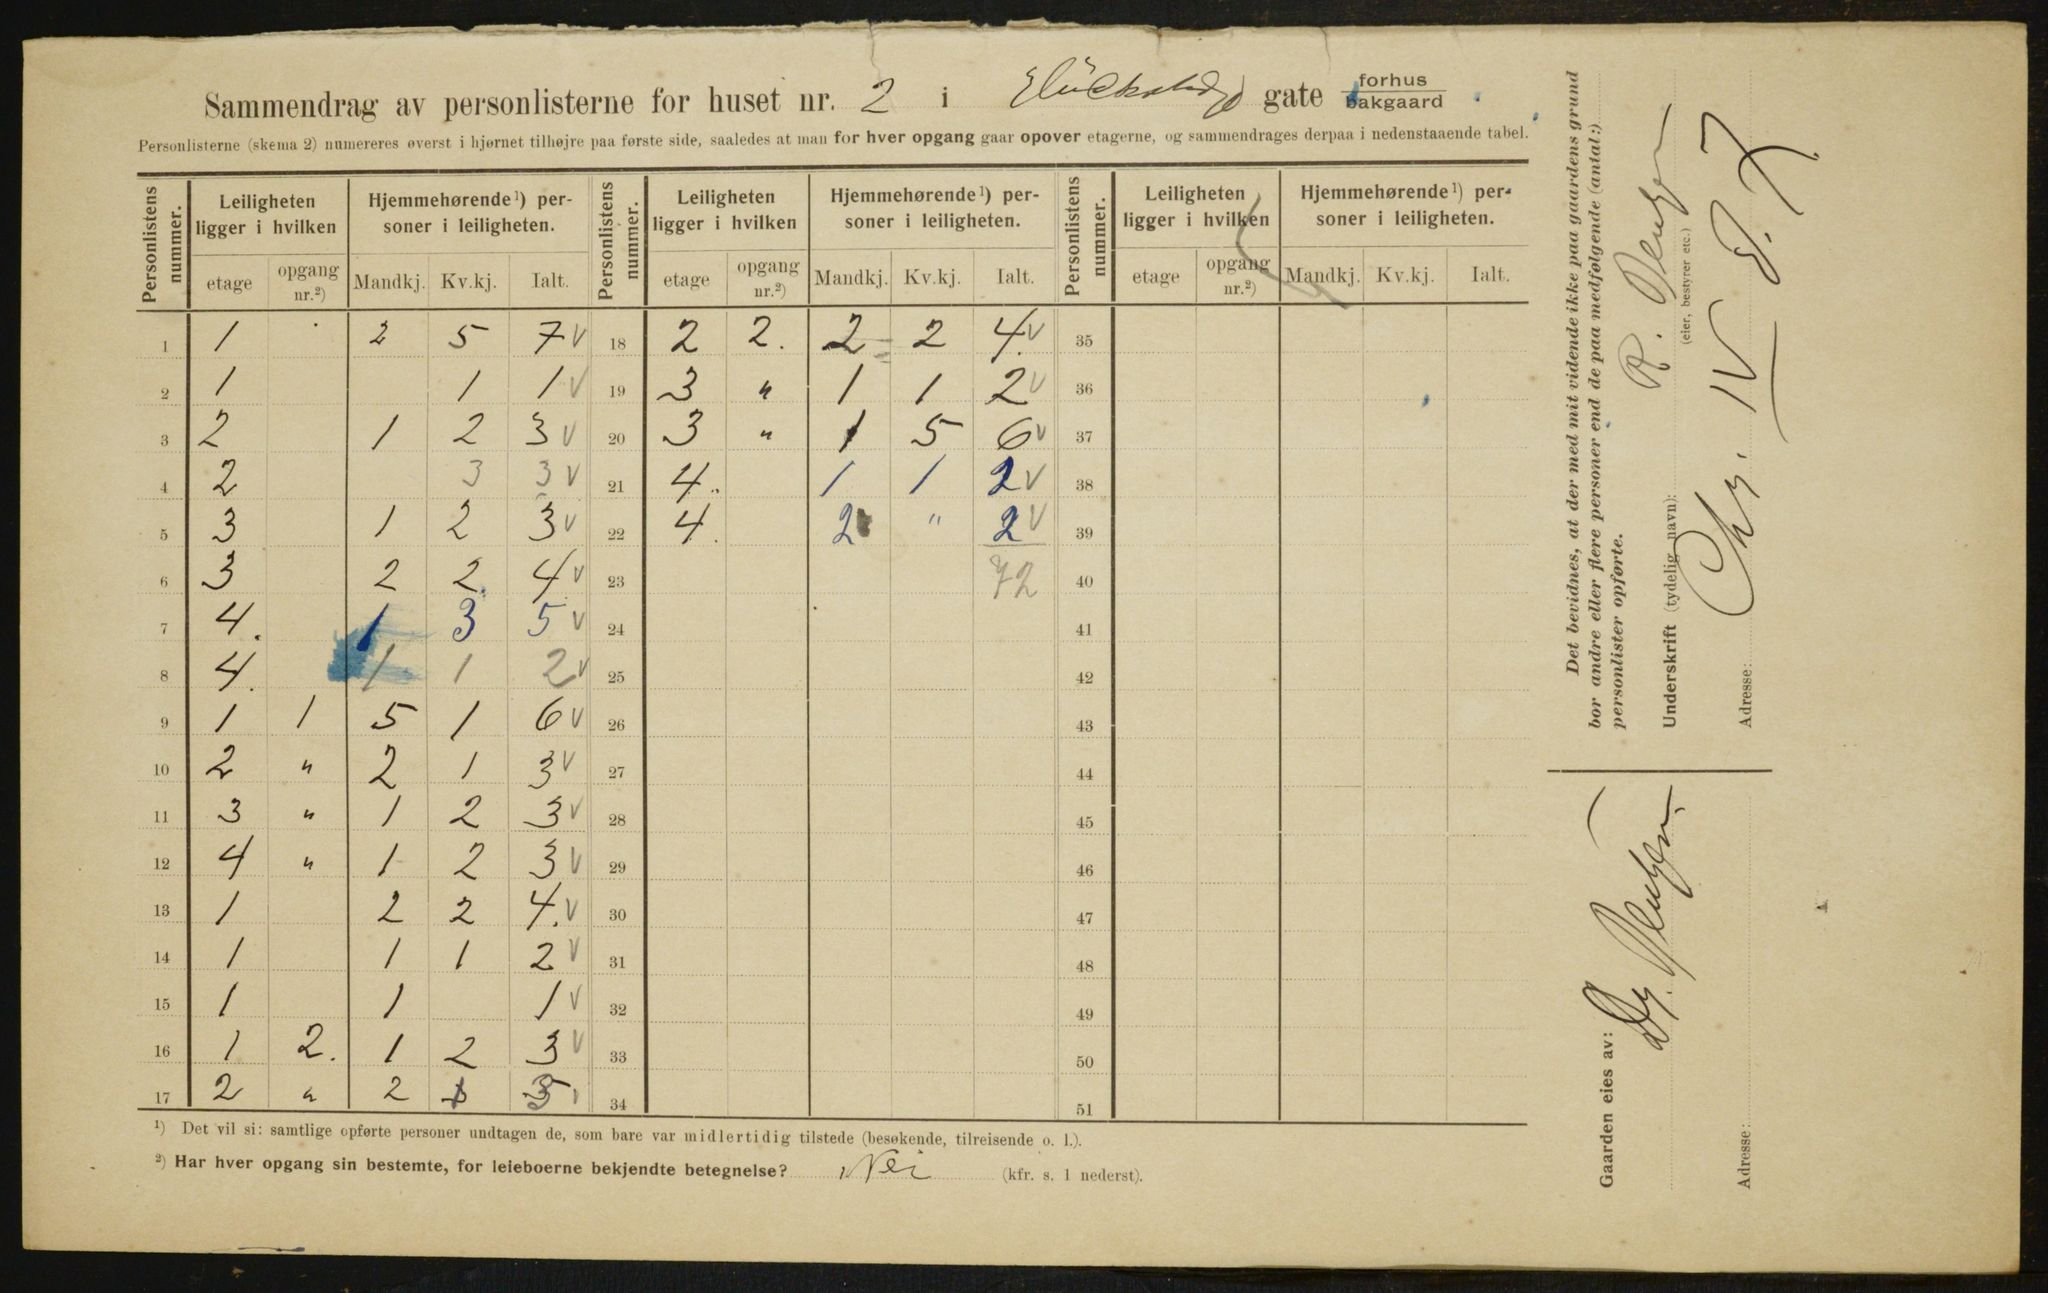 Sammendrag av personlisterne for huset nr. 2 i Glückstad gate forhus bakgaard
Personlisterne (skema 2) numereres øverst i hjørnet tilhøjre paa første side, saaledes at man for hver opgang gaar opover etagerne, og sammendrages derpaa i nedenstaaende tabel.
Personlistens nummer. Leiligheten ligger i hvilken Hjemmehørende ¹) personer i leiligheten. Personlistens nummer. Leiligheten ligger i hvilken Hjemmehørende ¹) personer i leiligheten. Personlistens nummer. Leiligheten ligger i hvilken Hjemmehørende ¹) personer i leiligheten.
etage opgang nr.²) Mandkj. Kv.kj. Ialt. etage opgang nr.²) Mandkj. Kv.kj. Ialt. etage opgang nr.²) Mandkj. Kv.kj. Ialt.
1 1 2 5 7 V 18 2 2. 2 2 4. V 35
2 1 1 1 V 19 3 " 1 1 2 V 36
3 2 1 2 3 V 20 3 " 1 5 6 V 37
4 2 3 3 V 21 4. 1 1 2 V 38
5 3 1 2 3 V 22 4. 2 " 2 V 39
6 3 2 2 4 V 23 72 40
7 4. 1 3 5 V 24 41
8 4. 1 1 2 V 25 42
9 1 1 5 1 6 V 26 43
10 2 " 2 1 3 V 27 44
11 3 " 1 2 3 V 28 45
12 4 " 1 2 3 V 29 46
13 1 2 2 4. V 30 47
14 1 1 1 2 V 31 48
15 1 1 1 V 32 49
16 1 2. 1 2 3 V 33 50
17 2 " 2 34 51
¹) Det vil si: samtlige opførte personer undtagen de, som bare var midlertidig tilstede (besøkende, tilreisende o. l.).
²) Har hver opgang sin bestemte, for leieboerne bekjendte betegnelse? Nei (kfr. s. 1 nederst).
Det bevidnes, at der med mit vidende ikke paa gaardens grund
bor andre eller flere personer end de paa medfølgende (antal:)
personlister opførte.
Underskrift (tydelig navn):
(eier, bestyrer etc.)
Adresse: Chr. IV
Gaarden eies av:
Adresse: